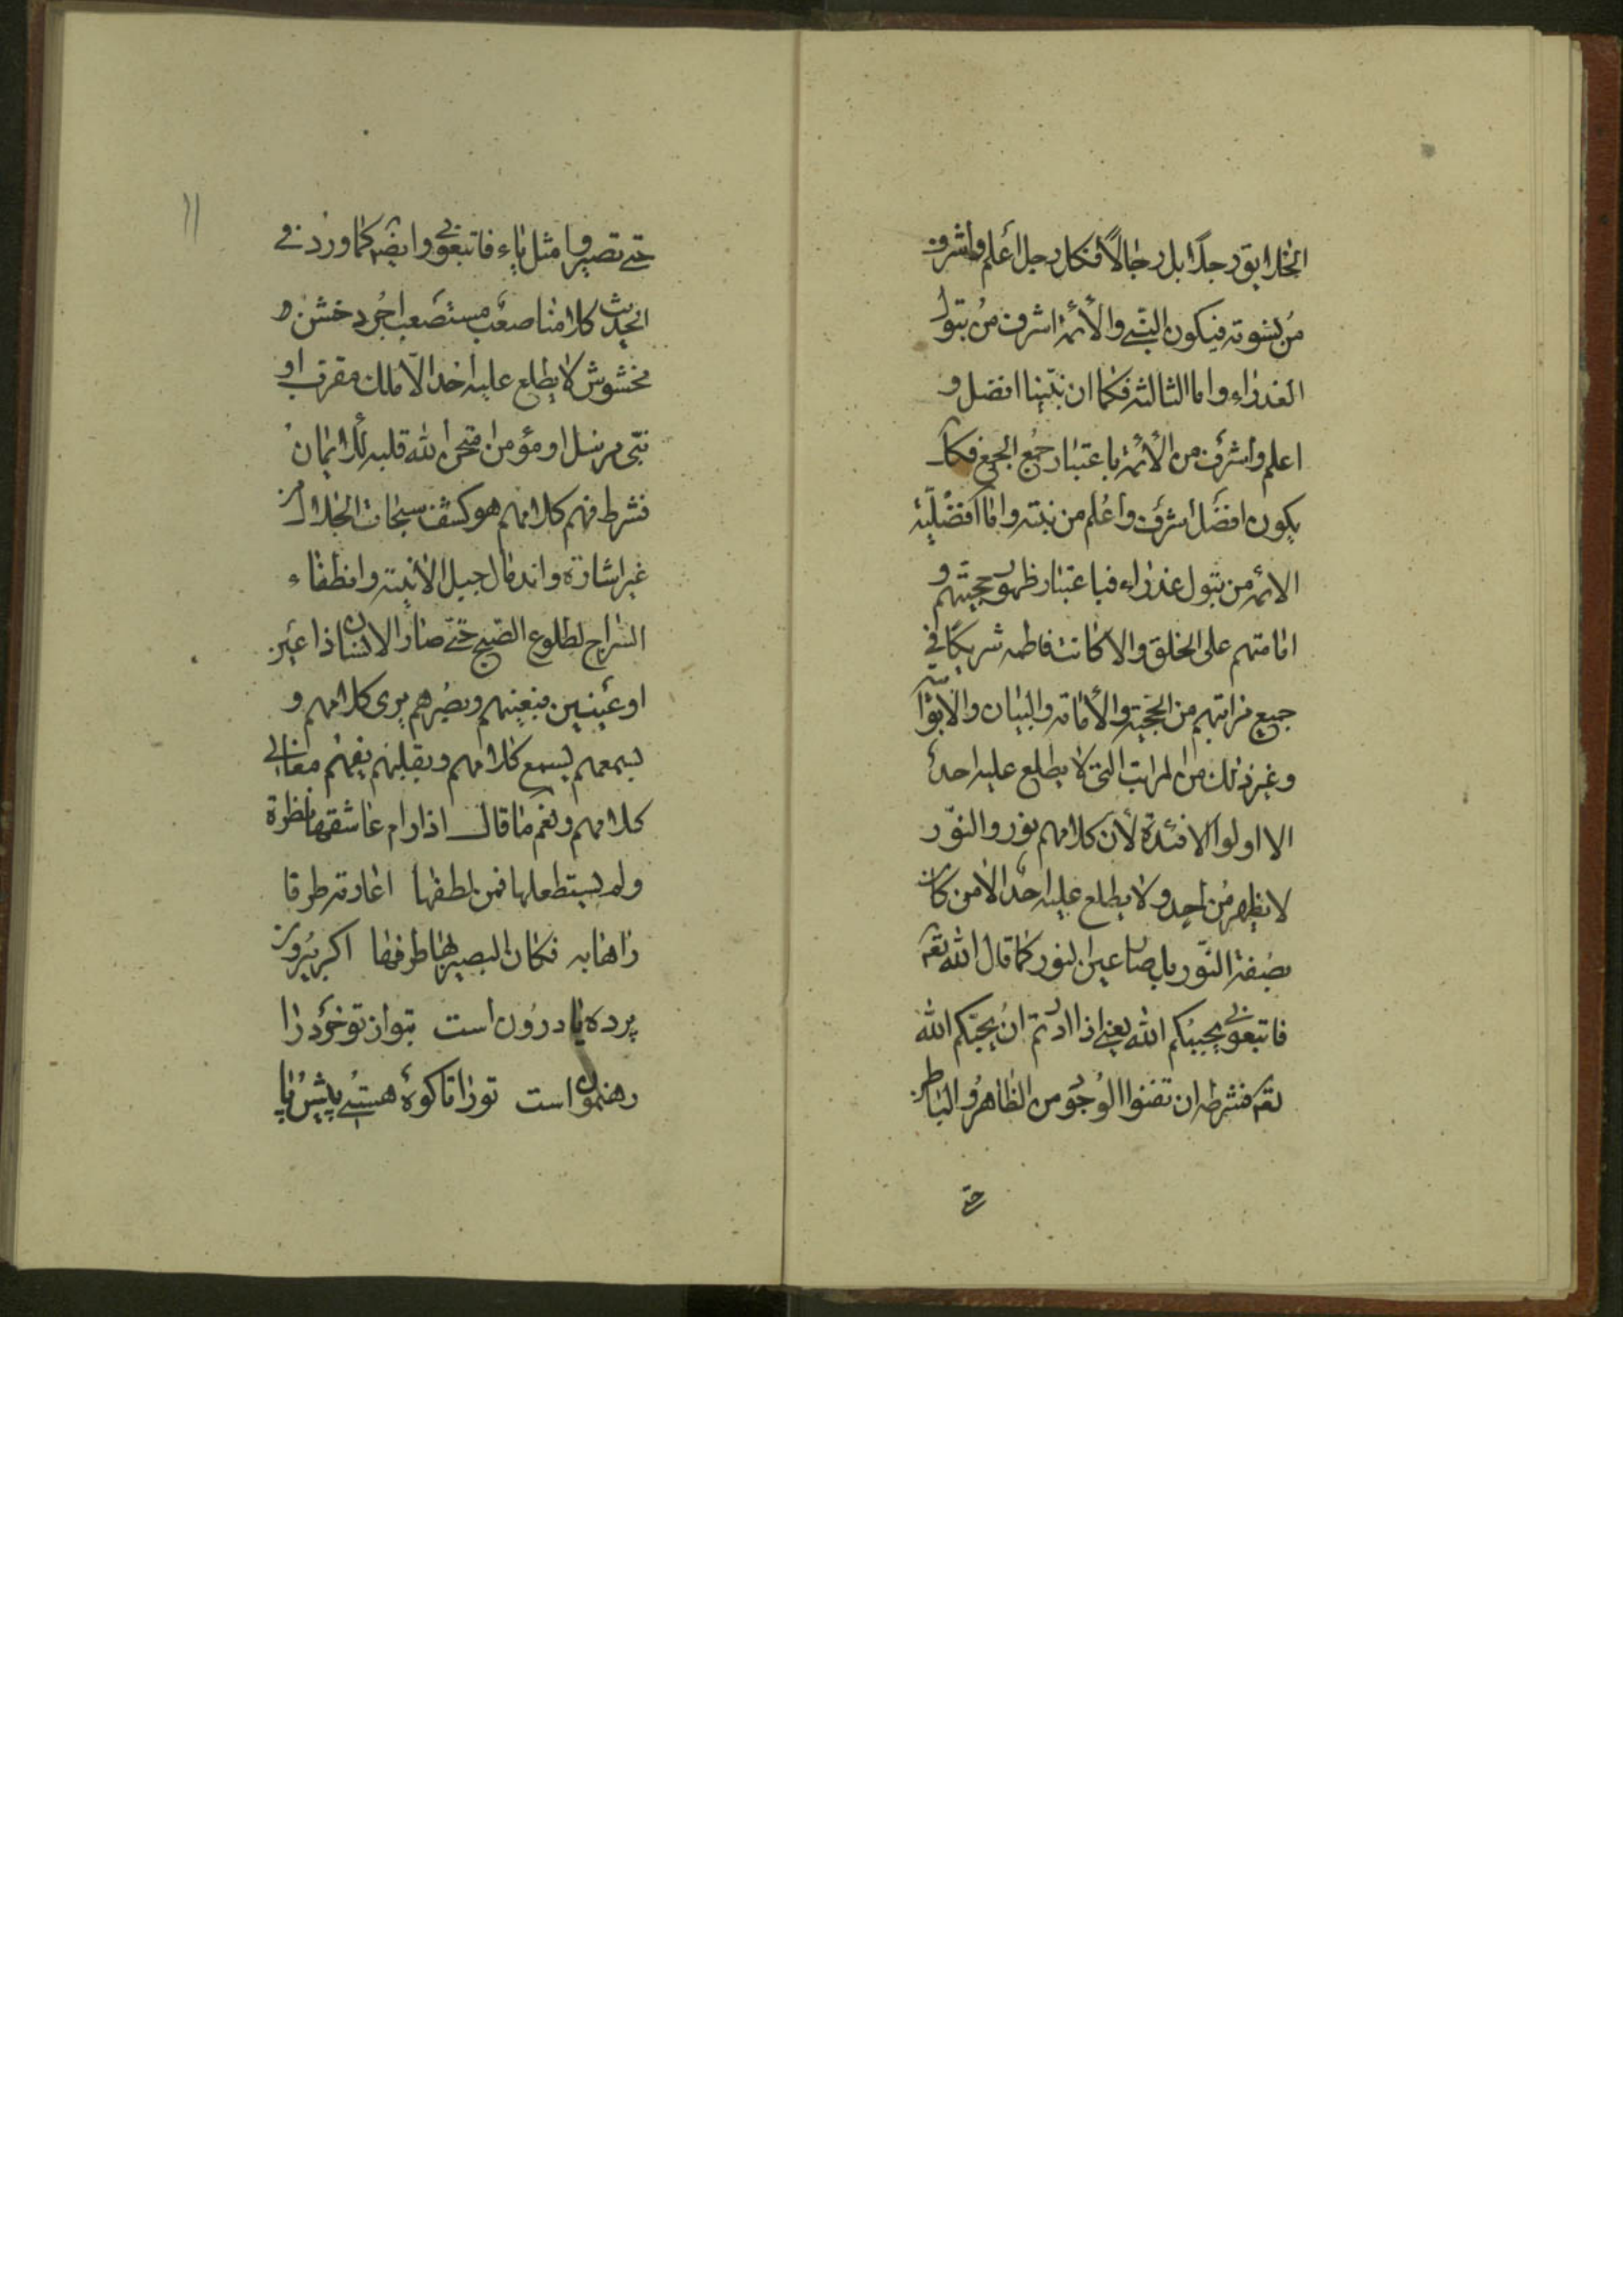 الخلایق رجلا بل رجالا فکل رجل اعلم واشرف
من نسوته فیکون النبی والأئمة اشرف من بتول
العذراء واما الثالثه فکما ان نبینا افضل و
اعلم واشرف من الأئمة باعتبار جمع الجمع فکک
یکون افضل اشرف واعلم من بنته واما افضلیة
الائمه من بتول عذراء فباعتبار ظهور حجیتهم و
امامتهم علی الخلق والا کانت فاطمه شریکا فی
جمیع مراتبهم من الحجیة والأمامة والبیان والابوابیة
وغیر ذلک من المراتب التی لا یطلع علیه احد
الا اولوا الافئدة لأن کلامهم نور والنور
لا یظهر من احد ولا یطلع علیه احد الا من کان
بصفة النور بل صار عین النور کما قال الله تعم
فاتبعونی یحببکم الله یعنی اذا اردتم ان یحبکم الله
تعم فشرطه ان تفنوا الوجود من الظاهر والباطن
حتی
۱۱
حتی تصیروا مثل یاء فاتبعونی وایضه کما ورد فی
الحدیث کلامنا صعب مستصعب اجرد خشن و
مخشوش لا یطلع علیه احد الا ملک مقرب او
نبی مرسل او مؤمن امتحن الله قلبه للایمان
فشرط فهم کلامهم هو کشف سبحات الجلال من
غیر اشارة واندکال جبل الانیة وانطفاء
السراج لطلوع الصبح حتی صار الانسان ذا عین
او عینین فبعینهم وبصرهم یری کلامهم و
بسمعهم یسمع کلامهم وبقلبهم یفهم معانی
کلامهم ونعم ما قال اذا رام عاشقها نظرة
ولم یستطعها فمن لطفها اعارته طرفا
راها به فکان البصیر بها طرفها اکر بیرون
پرده یا درون است بتو از تو خود را
رهنمون است تو را تا کوه هستی پیش پا